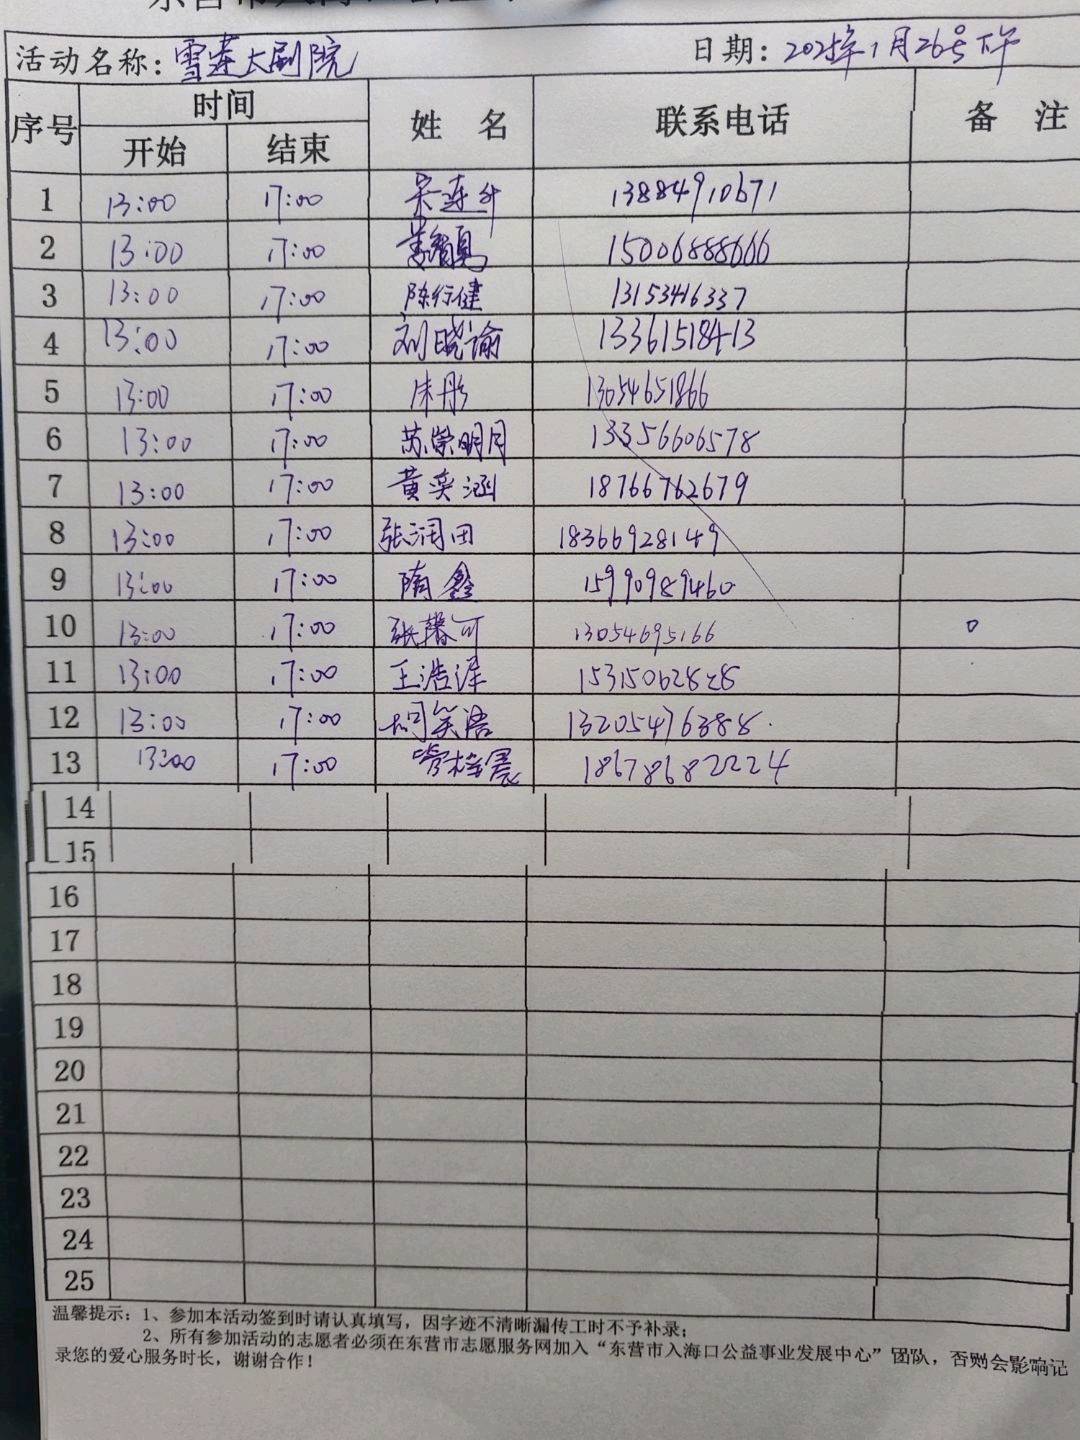 活动名称：雪莲大剧院 日期：2025年1月26号下午
序号 时间 姓 名 联系电话 备 注
开始 结束
1 13:00 17:00 宋连升 13884910671
2 13:00 17:00 15006888666
3 13:00 17:00 陈行健 13153416337
4 13:00 17:00 刘晓谕 13361518413
5 13:00 17:00 朱彤 13054651866
6 13:00 17:00 苏荣明月 13356606578
7 13:00 17:00 黄奕涵 18766762679
8 13:00 17:00 张润田 18366928149
9 13:00 17:00 隋鑫 15990989460
10 13:00 17:00 张馨可 13054695166
11 13:00 17:00 王浩泽 15315062828
12 13:00 17:00 胡笑语 13205476388
13 13:00 17:00 管梓晨 18678682224
14
15
16
17
18
19
20
21
22
23
24
25
温馨提示：1、参加本活动签到时请认真填写，因字迹不清晰漏传工时不予补录；
2、所有参加活动的志愿者必须在东营市志愿服务网加入“东营市入海口公益事业发展中心”团队，否则会影响记
录您的爱心服务时长，谢谢合作！